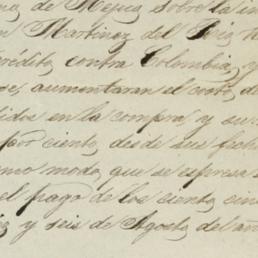 de Mejico sobre la in
n Martinez del Rio h
crédito contra Colombia, y
ose, aumentaran el costo de
didos en la compra, y su
por ciento, desde sus fech
mo modo, que se espresa
el pago de los ciento cin
y seis de Agosto del añ